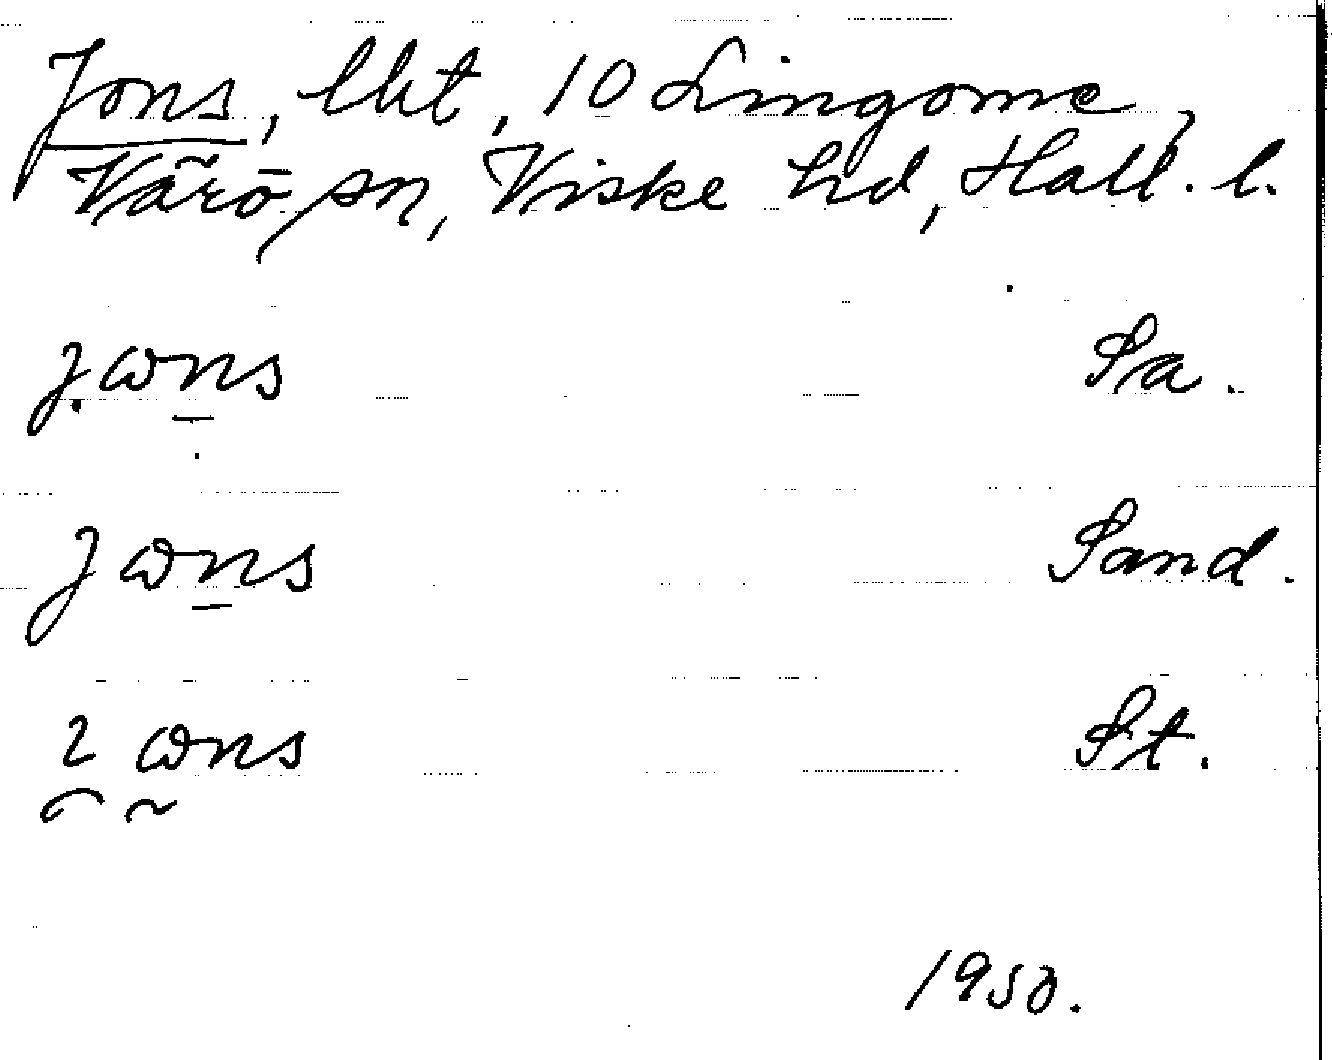 Jons, lht, 10 Lingome,
Värö sn, Viske hd, Hall. l.
j. ωns Sa.
j ωns Sand.
ωns St.
1950.